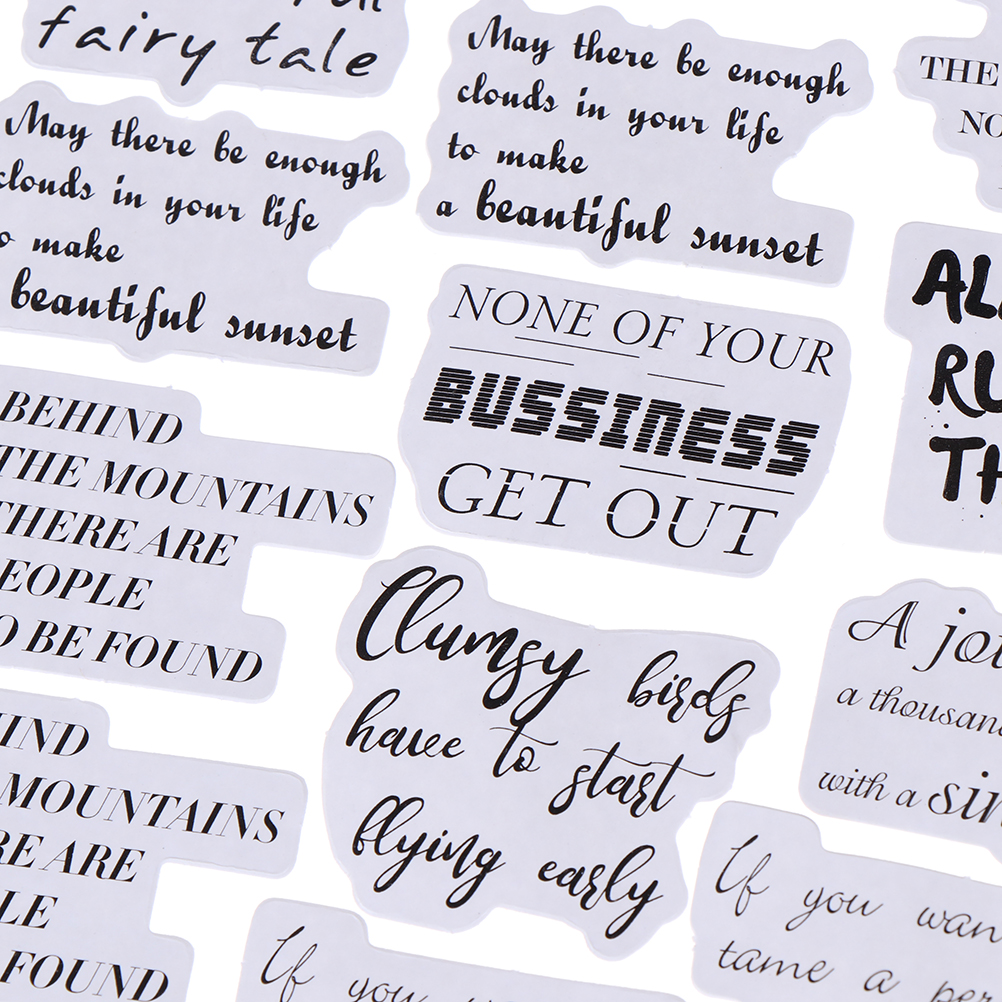 fairy tale
May there be enough
clouds in your life
to make
a beautiful sunset
THE
NO
May there be enough
clouds in your life
to make
beautiful sunset
NONE OF YOUR
BUSSINESS
GET OUT
BEHIND
THE MOUNTAINS
THERE ARE
EOPLE
O BE FOUND
Clumsy birds
have to start
flying early
A jou
a thousand
with a sin
IND
MOUNTAINS
RE ARE
LE
FOUND
If you wan
tame a per
If you
RU
TH